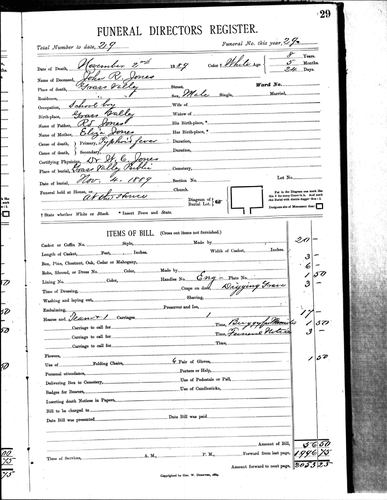 29
FUNERAL DIRECTORS REGISTER.
Total Number to date, 29 Funeral No. this year, 29
Date of Death, November 2nd 1889 Color, White Age 8 Years.
5 Months.
24 Days.
Name of Deceased, John R. Jones
Place of Death, Grass Valley Street. Ward No.
Residence, Sex, Male Single, Married,
Occupation, School boy Wife of
Birth-place, Grass Valley Widow of
Name of Father, R S Jones His Birth-place, *
Name of Mother, Eliza Jones Her Birth-place, *
Cause of Death, Primary, Typhoid fever Duration,
Cause of Death, Secondary, Duration,
Certifying Physician, Dr W. C. Jones
Place of burial, Grass Valley Public Cemetery.
Date of burial, Nov. 4. 1889 Section No. Lot No.
Funeral held at House, or Church.
at the House
Diagram of Burial Lot.
Put in the Diagram the mark
Designate site of Monument thus
† State whether White or Black. * Insert Town and State.
ITEMS OF BILL. (Cross out items not furnished.)
Casket or Coffin No. Style, Made by 20 -
Length of Casket, Feet, Inches. Width of Casket, Inches.
Box, Pine, Chestnut, Oak, Cedar or Mahogany, 3 -
Robe, Shroud, or Dress No. Made by 6 -
Lining No. Color, Handles No. Eng - Plate No. 1 50
Time of Dressing, Cape on call, Digging Grave 3 -
Washing and laying out, Shaving,
Embalming, Preserver and Ice,
Hearse and Team 1 Carriages 1 17 -
Carriage to call for Time, Buggy 1 50
Carriage to call for Time, Funeral Notices 3 -
Carriage to call for Time,
Flowers,
Use of Folding Chairs, 6 Pair of Gloves, 1 50
Personal attendance, Porters or Help,
Delivering Box to Cemetery, Use of Pedestals or Pall,
Badges for Bearers, Use of Candlesticks,
Inserting death Notices in Papers,
Bill to be charged to
Date Bill was presented Date Bill was paid
Amount of Bill, 56 50
Time of Services, A. M., P. M. Forward from last page, 1996 75
Amount forward to next page, 2053 25
Copyrighted by Geo. W. Donovan, 1884.
00
75
00
75